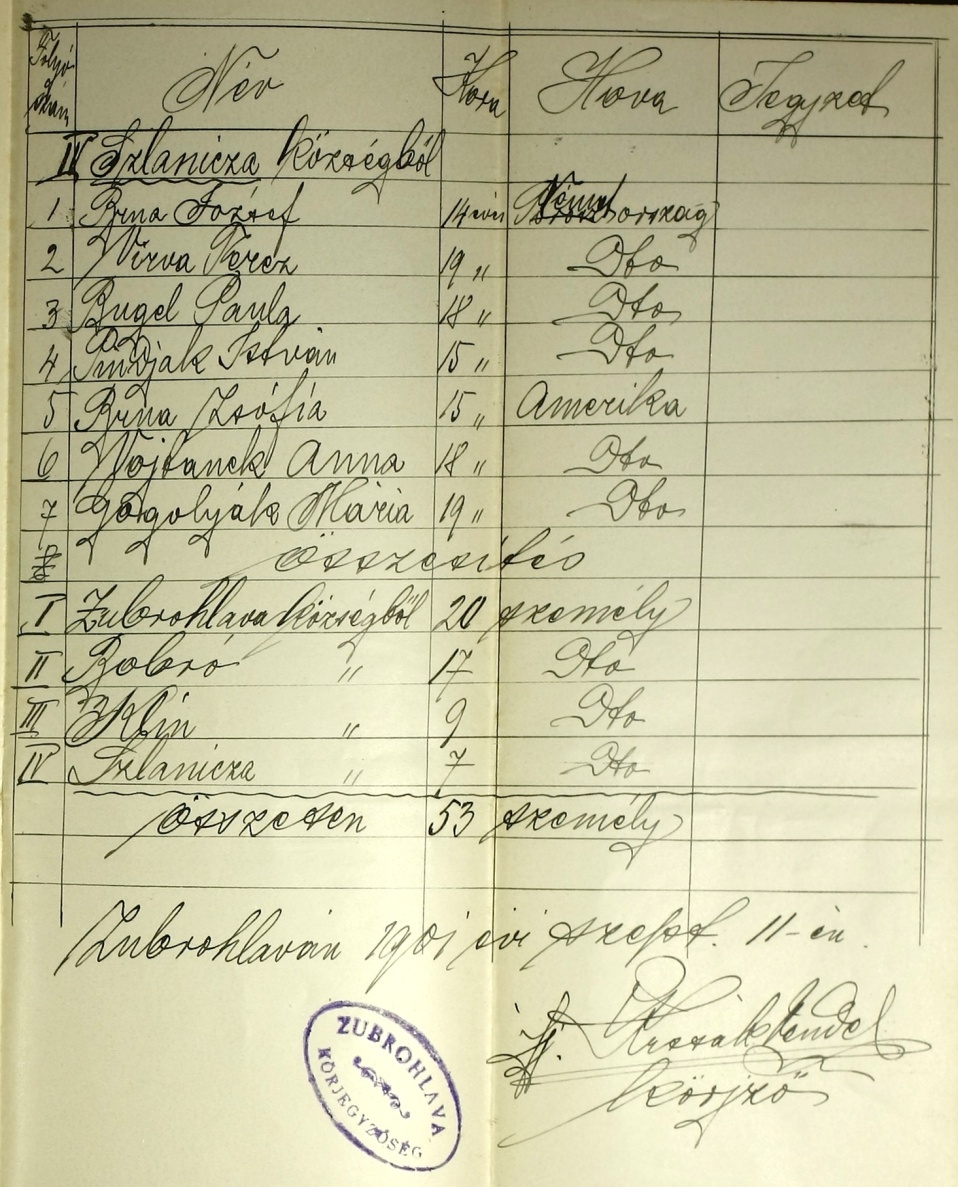 Folyó szám Név Kora Hova Jegyzet
IV Szlanicza községből
1 Brna József 14 éves Németország
2 Virva Terez 19 " Dto
3 Bugel Paula 18 " Dto
4 István 15 " Dto
5 Brna Zsófia 15 " Amerika
6 Vojtanek Anna 18 " Dto
7 Gogolyák Mária 19 " Dto
Összesítés
I Zubrohlava községből 20 személy
II Bobró " 17 Dto
III Klin " 9 Dto
IV Szlanicza " 7 Dto
összesen 53 személy
Zubrohlaván 1901 évi szept. 11-én.
ifj. Vendel
körjző
ZUBROHLAVA
KÖRJEGYZŐSÉG